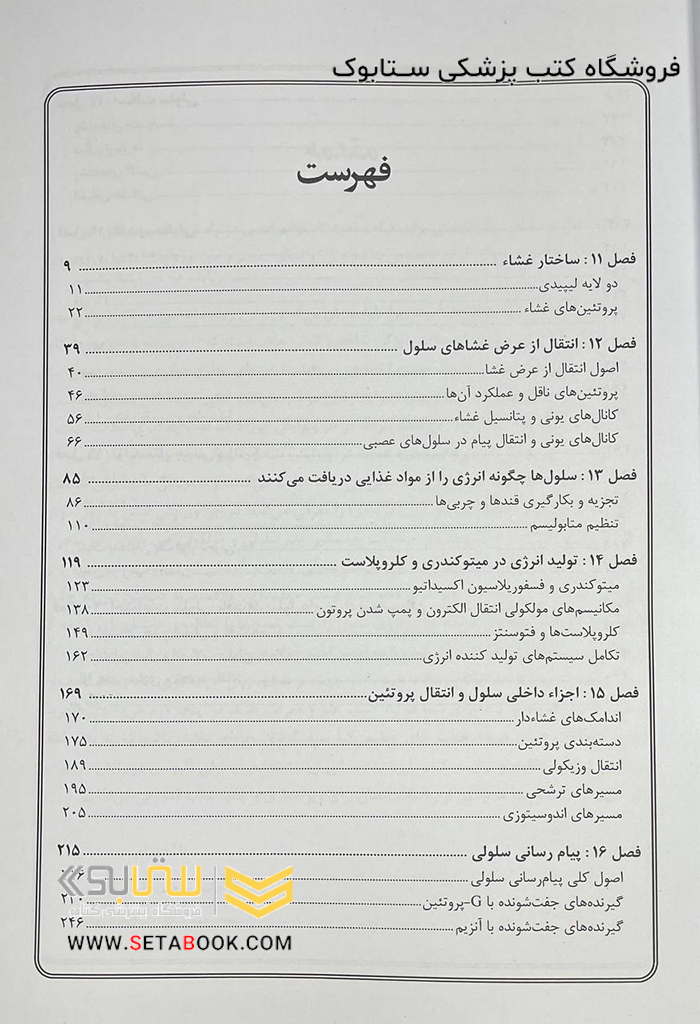 فروشگاه کتب پزشکی ستابوک
فهرست
فصل ۱۱ : ساختار غشاء ۹
دو لایه لیپیدی ۱۱
پروتئین‌های غشاء ۲۲
فصل ۱۲ : انتقال از عرض غشاهای سلول ۳۹
اصول انتقال از عرض غشا ۴۰
پروتئین‌های ناقل و عملکرد آن‌ها ۴۶
کانال‌های یونی و پتانسیل غشاء ۵۶
کانال‌های یونی و انتقال پیام در سلول‌های عصبی ۶۶
فصل ۱۳ : سلول‌ها چگونه انرژی را از مواد غذایی دریافت می‌کنند ۸۵
تجزیه و بکارگیری قندها و چربی‌ها ۸۶
تنظیم متابولیسم ۱۱۰
فصل ۱۴ : تولید انرژی در میتوکندری و کلروپلاست ۱۱۹
میتوکندری و فسفوریلاسیون اکسیداتیو ۱۲۳
مکانیسم‌های مولکولی انتقال الکترون و پمپ شدن پروتون ۱۳۸
کلروپلاست‌ها و فتوسنتز ۱۴۹
تکامل سیستم‌های تولید کننده انرژی ۱۶۲
فصل ۱۵ : اجزاء داخلی سلول و انتقال پروتئین ۱۶۹
اندامک‌های غشاءدار ۱۷۰
دسته‌بندی پروتئین ۱۷۵
انتقال وزیکولی ۱۸۹
مسیرهای ترشحی ۱۹۵
مسیرهای اندوسیتوزی ۲۰۵
فصل ۱۶ : پیام رسانی سلولی ۲۱۵
اصول کلی پیام‌رسانی سلولی
گیرنده‌های جفت‌شونده با G-پروتئین ۲۳۰
گیرنده‌های جفت‌شونده با آنزیم ۲۴۶
ستابوک
فروشگاه اینترنتی کتاب
WWW.SETABOOK.COM